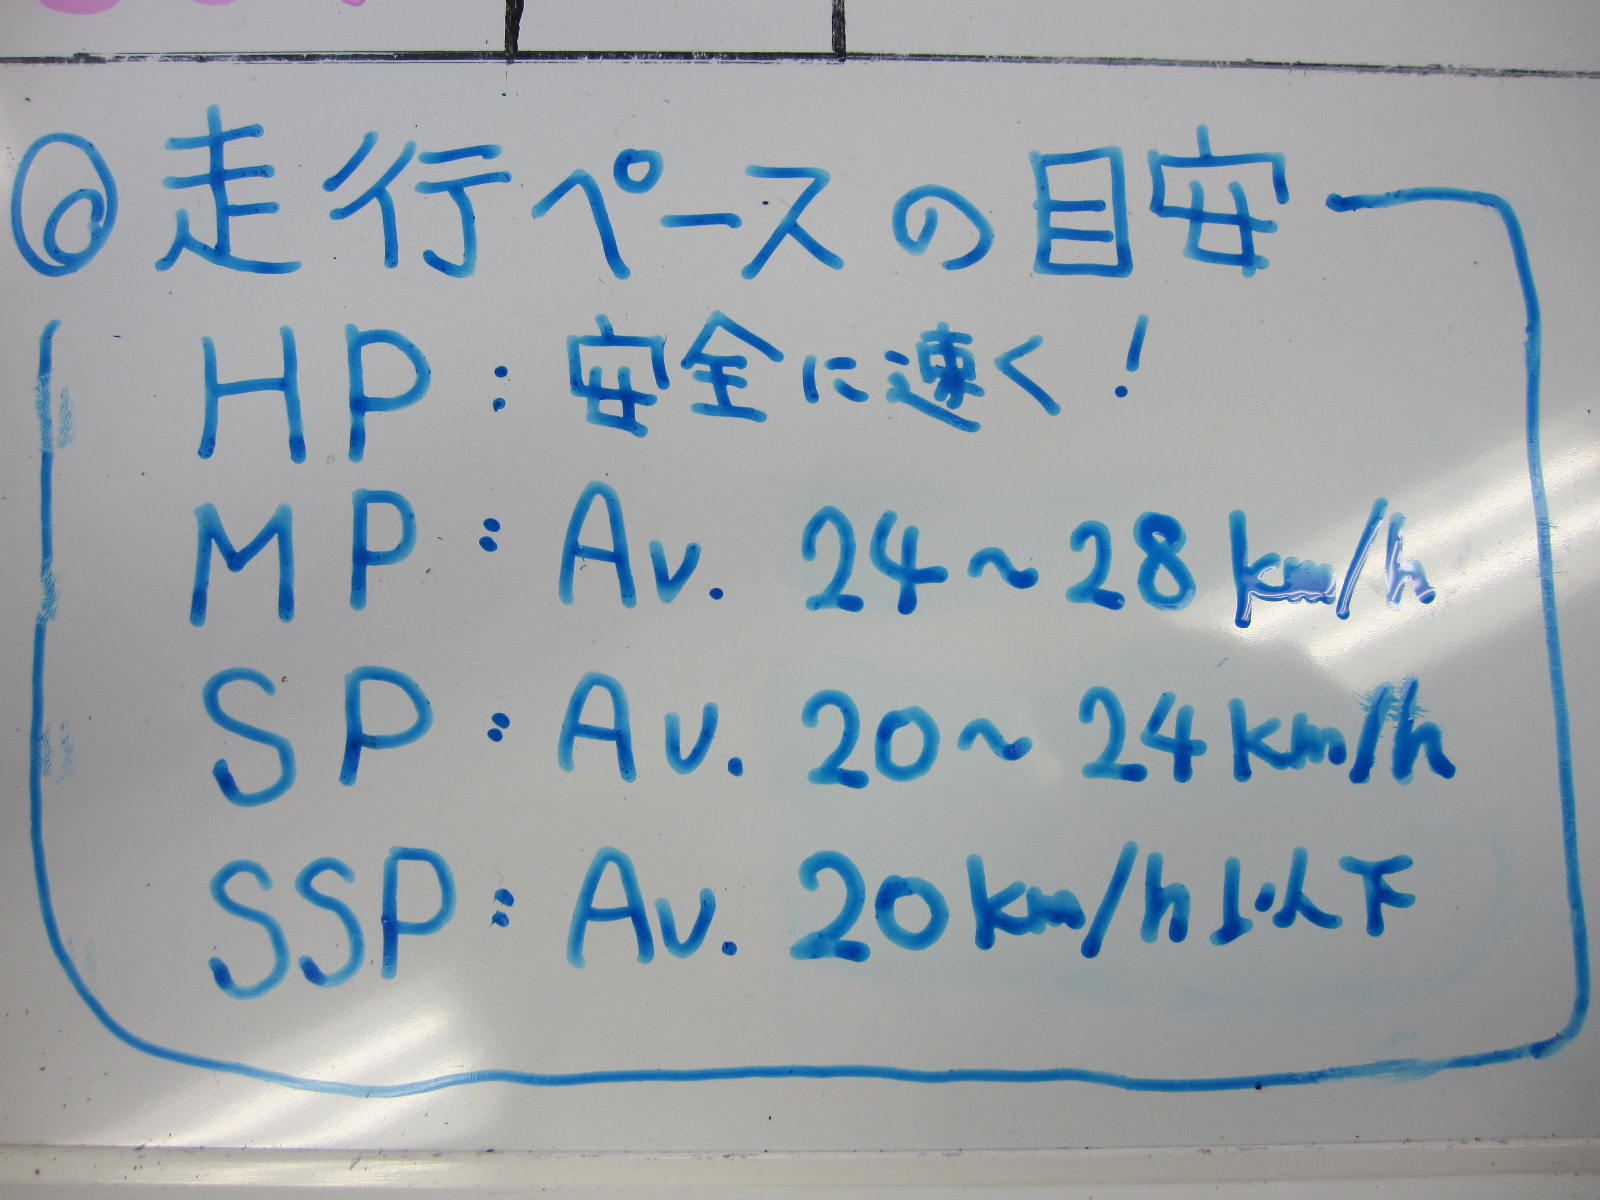 ◎走行ペースの目安
HP:安全に速く!
MP:Av. 24~28km/h
SP:Av. 20~24km/h
SSP:Av. 20km/h以下